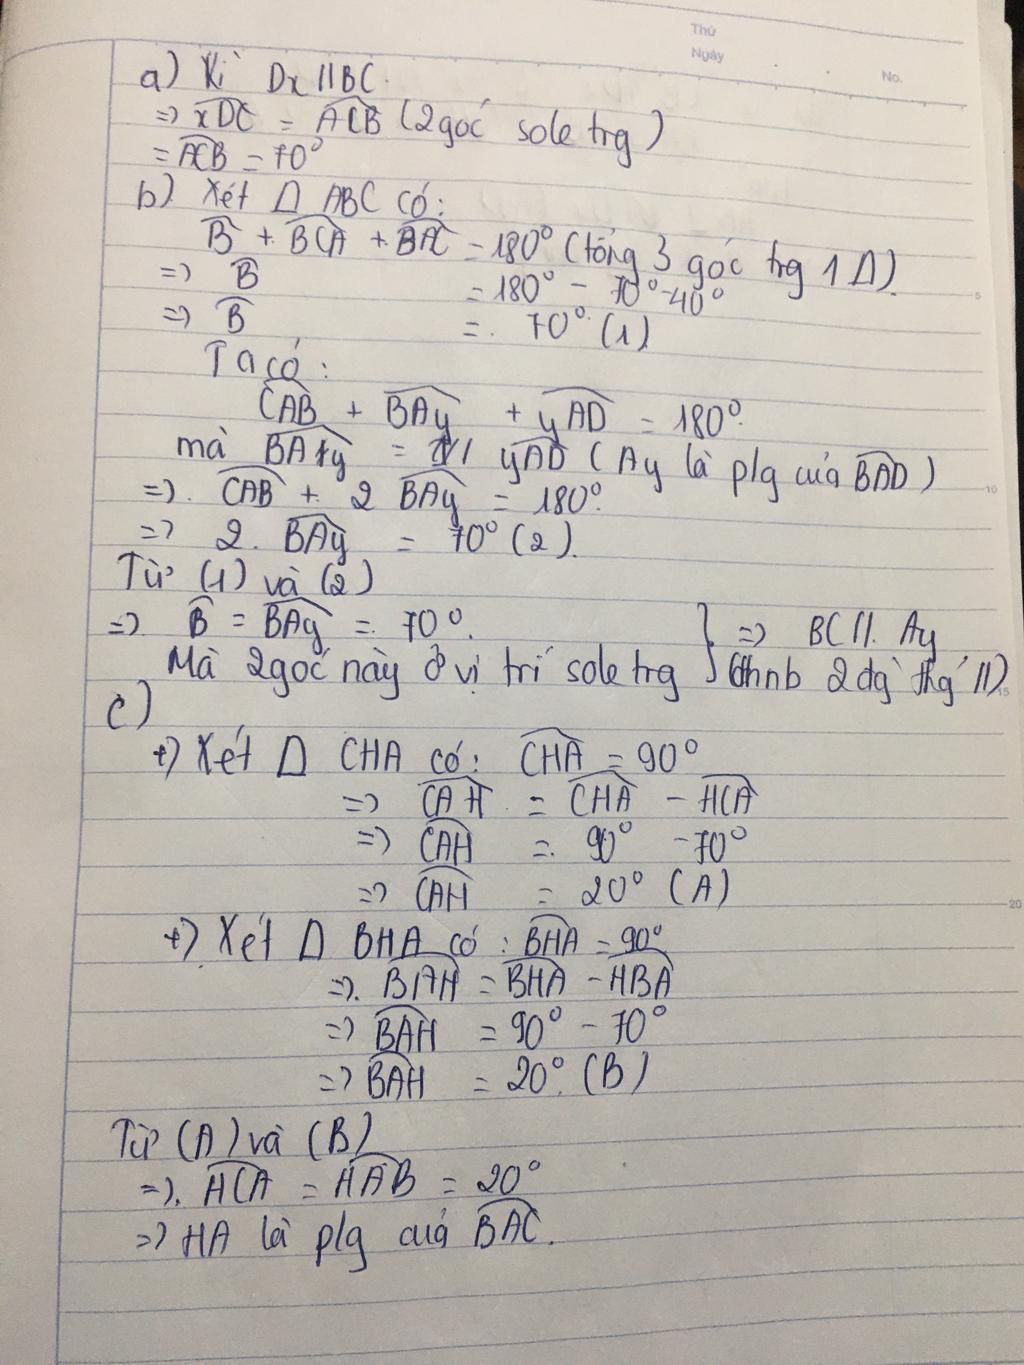 Thứ
Ngày
No.
a) Kì Dx // BC.
=> xDC = ACB (2 góc sole trg)
= ACB = 70°
b) Xét Δ ABC có:
B + BCA + BAC = 180° (tổng 3 góc trg 1 Δ).
=> B = 180° - 70° - 40°
=> B = 70° (1)
Ta có:
CAB + BAy + yAD = 180°.
mà BAy = yAD (Ay là plg của BAD)
=> CAB + 2 BAy = 180°.
=> 2. BAy = 70° (2).
Từ (1) và (2)
=> B = BAy = 70°.
Mà 2 góc này ở vị trí sole trg } => BC // Ay
(dhnb 2 đg thg //)
c)
+) Xét Δ CHA có: CHA = 90°
=> CAH = CHA - HCA
=> CAH = 90° - 70°
=> CAH = 20° (A)
+) Xét Δ BHA có: BHA = 90°
=> BAH = BHA - HBA
=> BAH = 90° - 70°
=> BAH = 20°. (B)
Từ (A) và (B)
=> HCA = HAB = 20°
=> HA là plg của BAC.
5
10
15
20